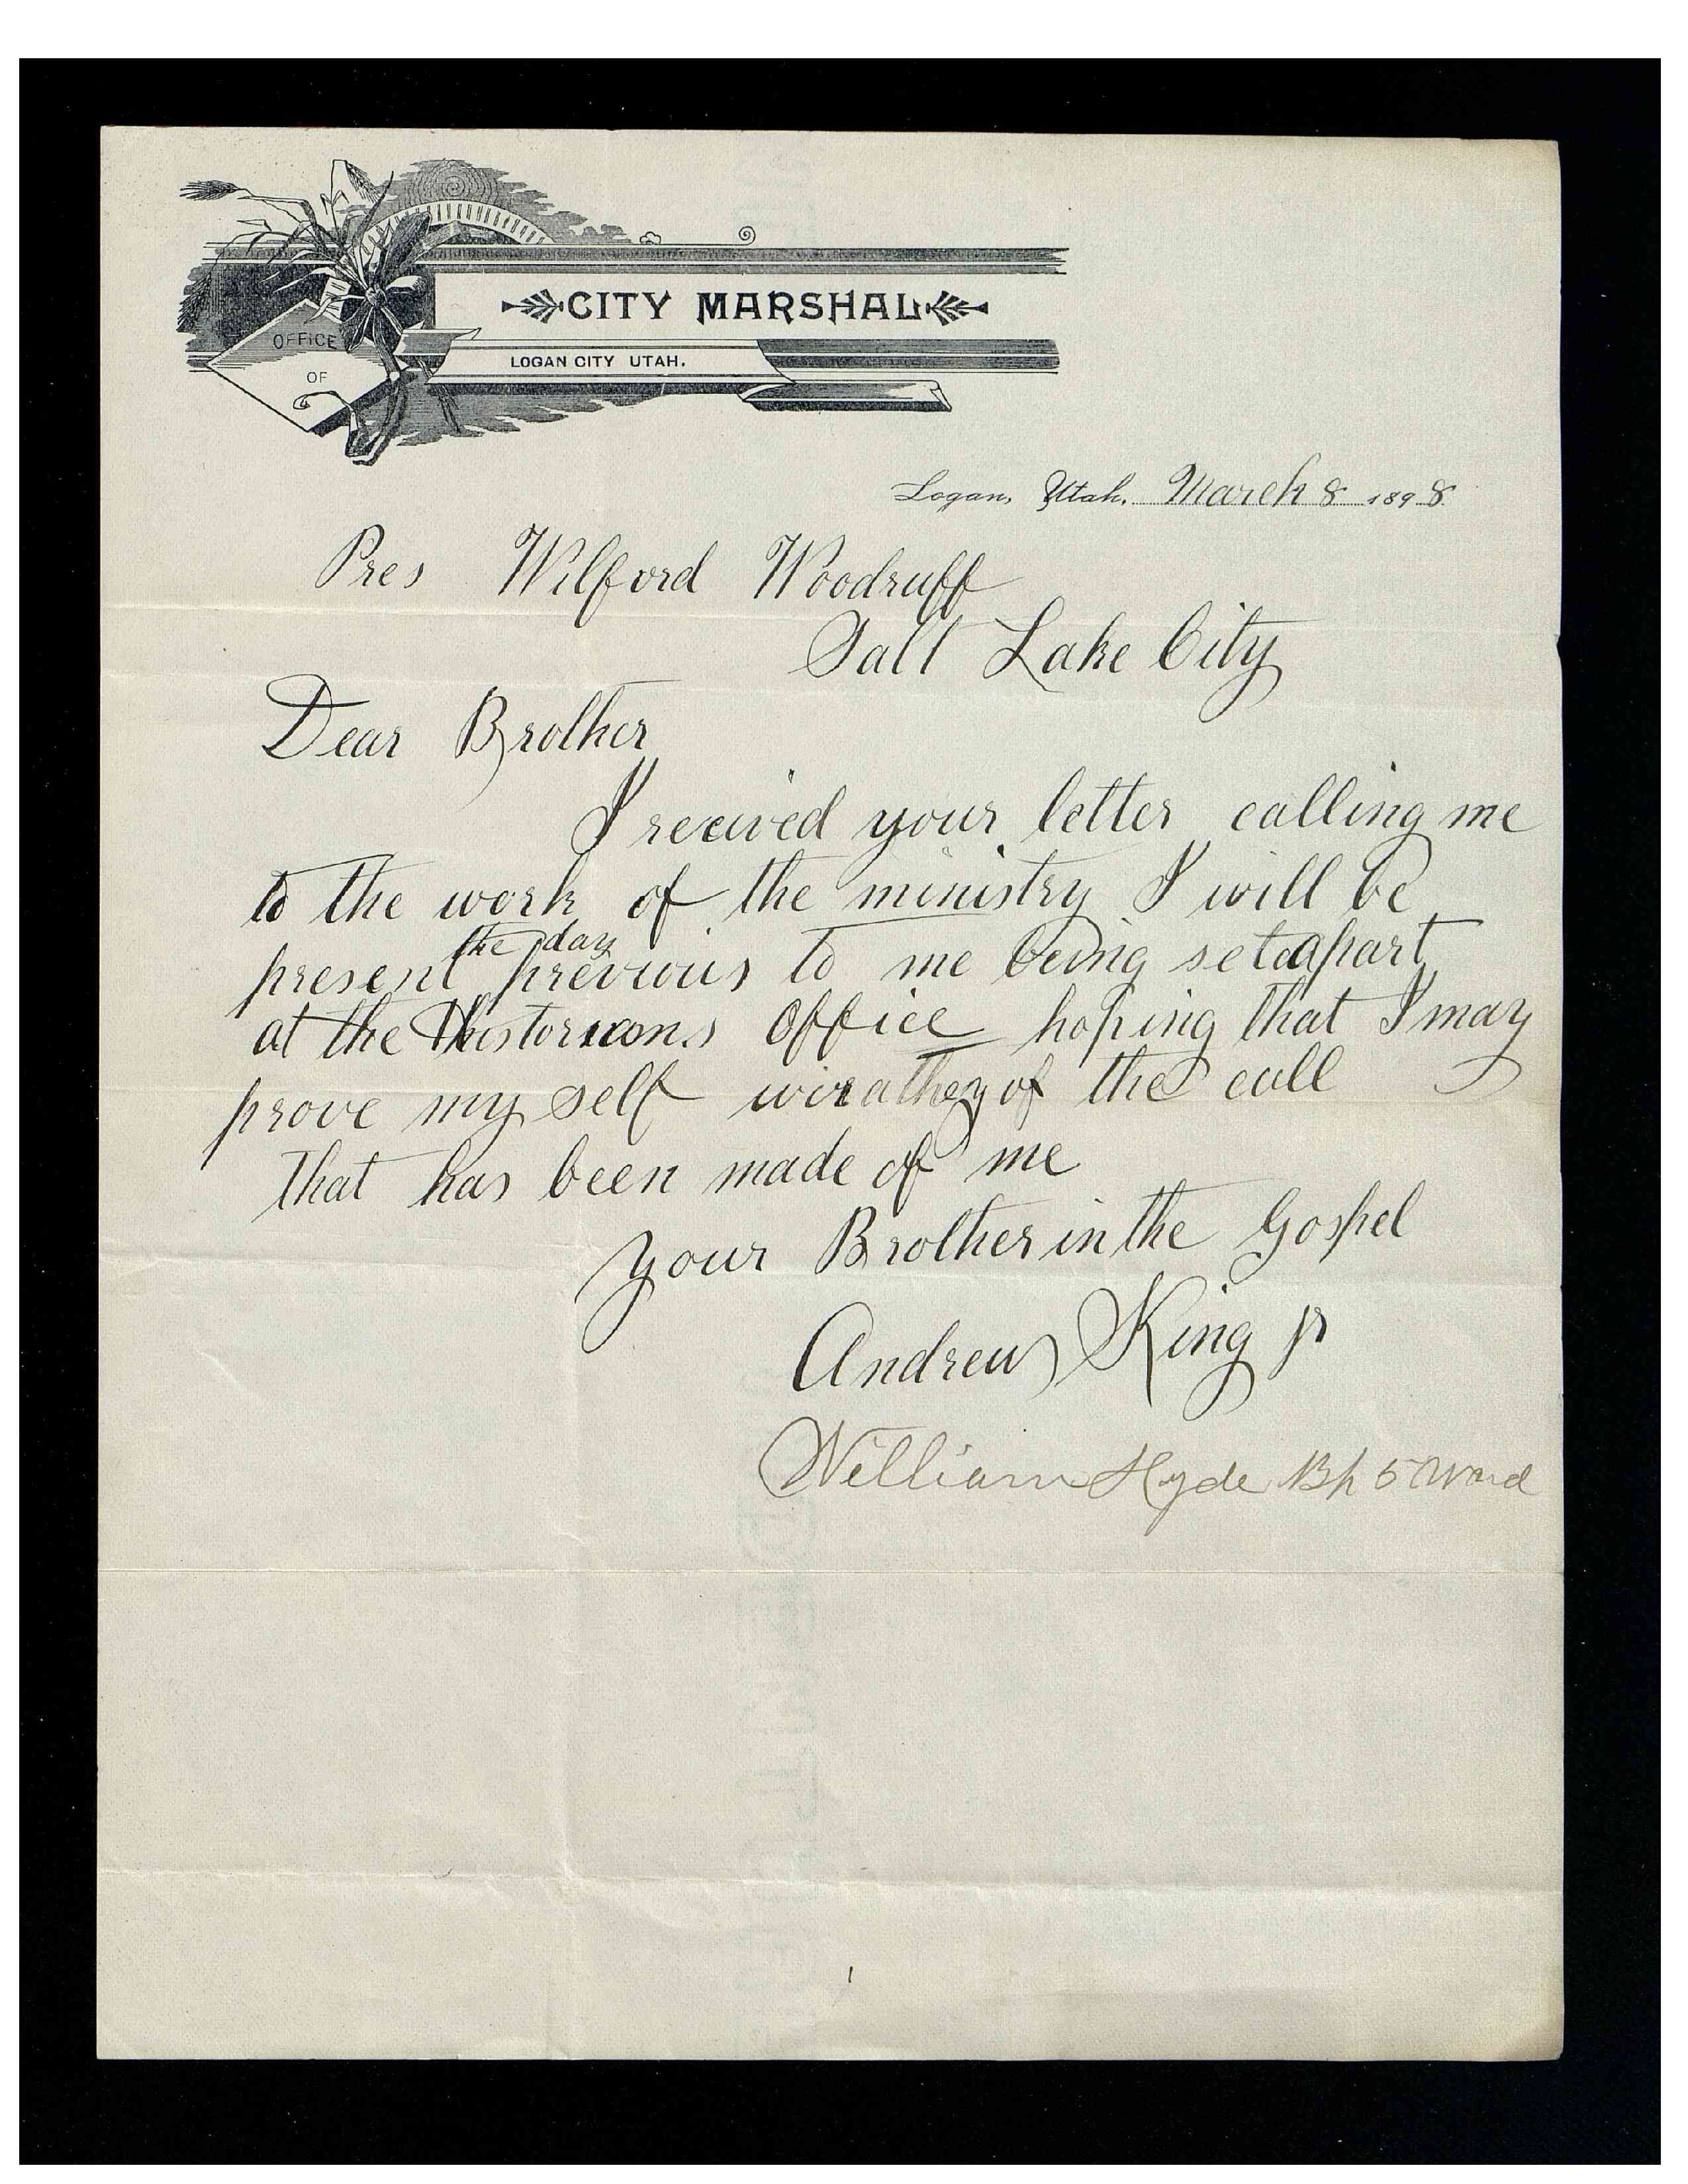 OFFICE
OF
CITY MARSHAL
LOGAN CITY UTAH.
Logan, Utah, March 8 1898
Pres Wilford Woodruff
Salt Lake City
Dear Brother
I recived your letter calling me
to the work of the ministry I will be
the day
present previous to me being set apart
at the Historians Office hoping that I may
prove my self of the call
that has been made of me
your Brother in the Gospel
Andrew King jr
William Hyde Bp 5 Ward